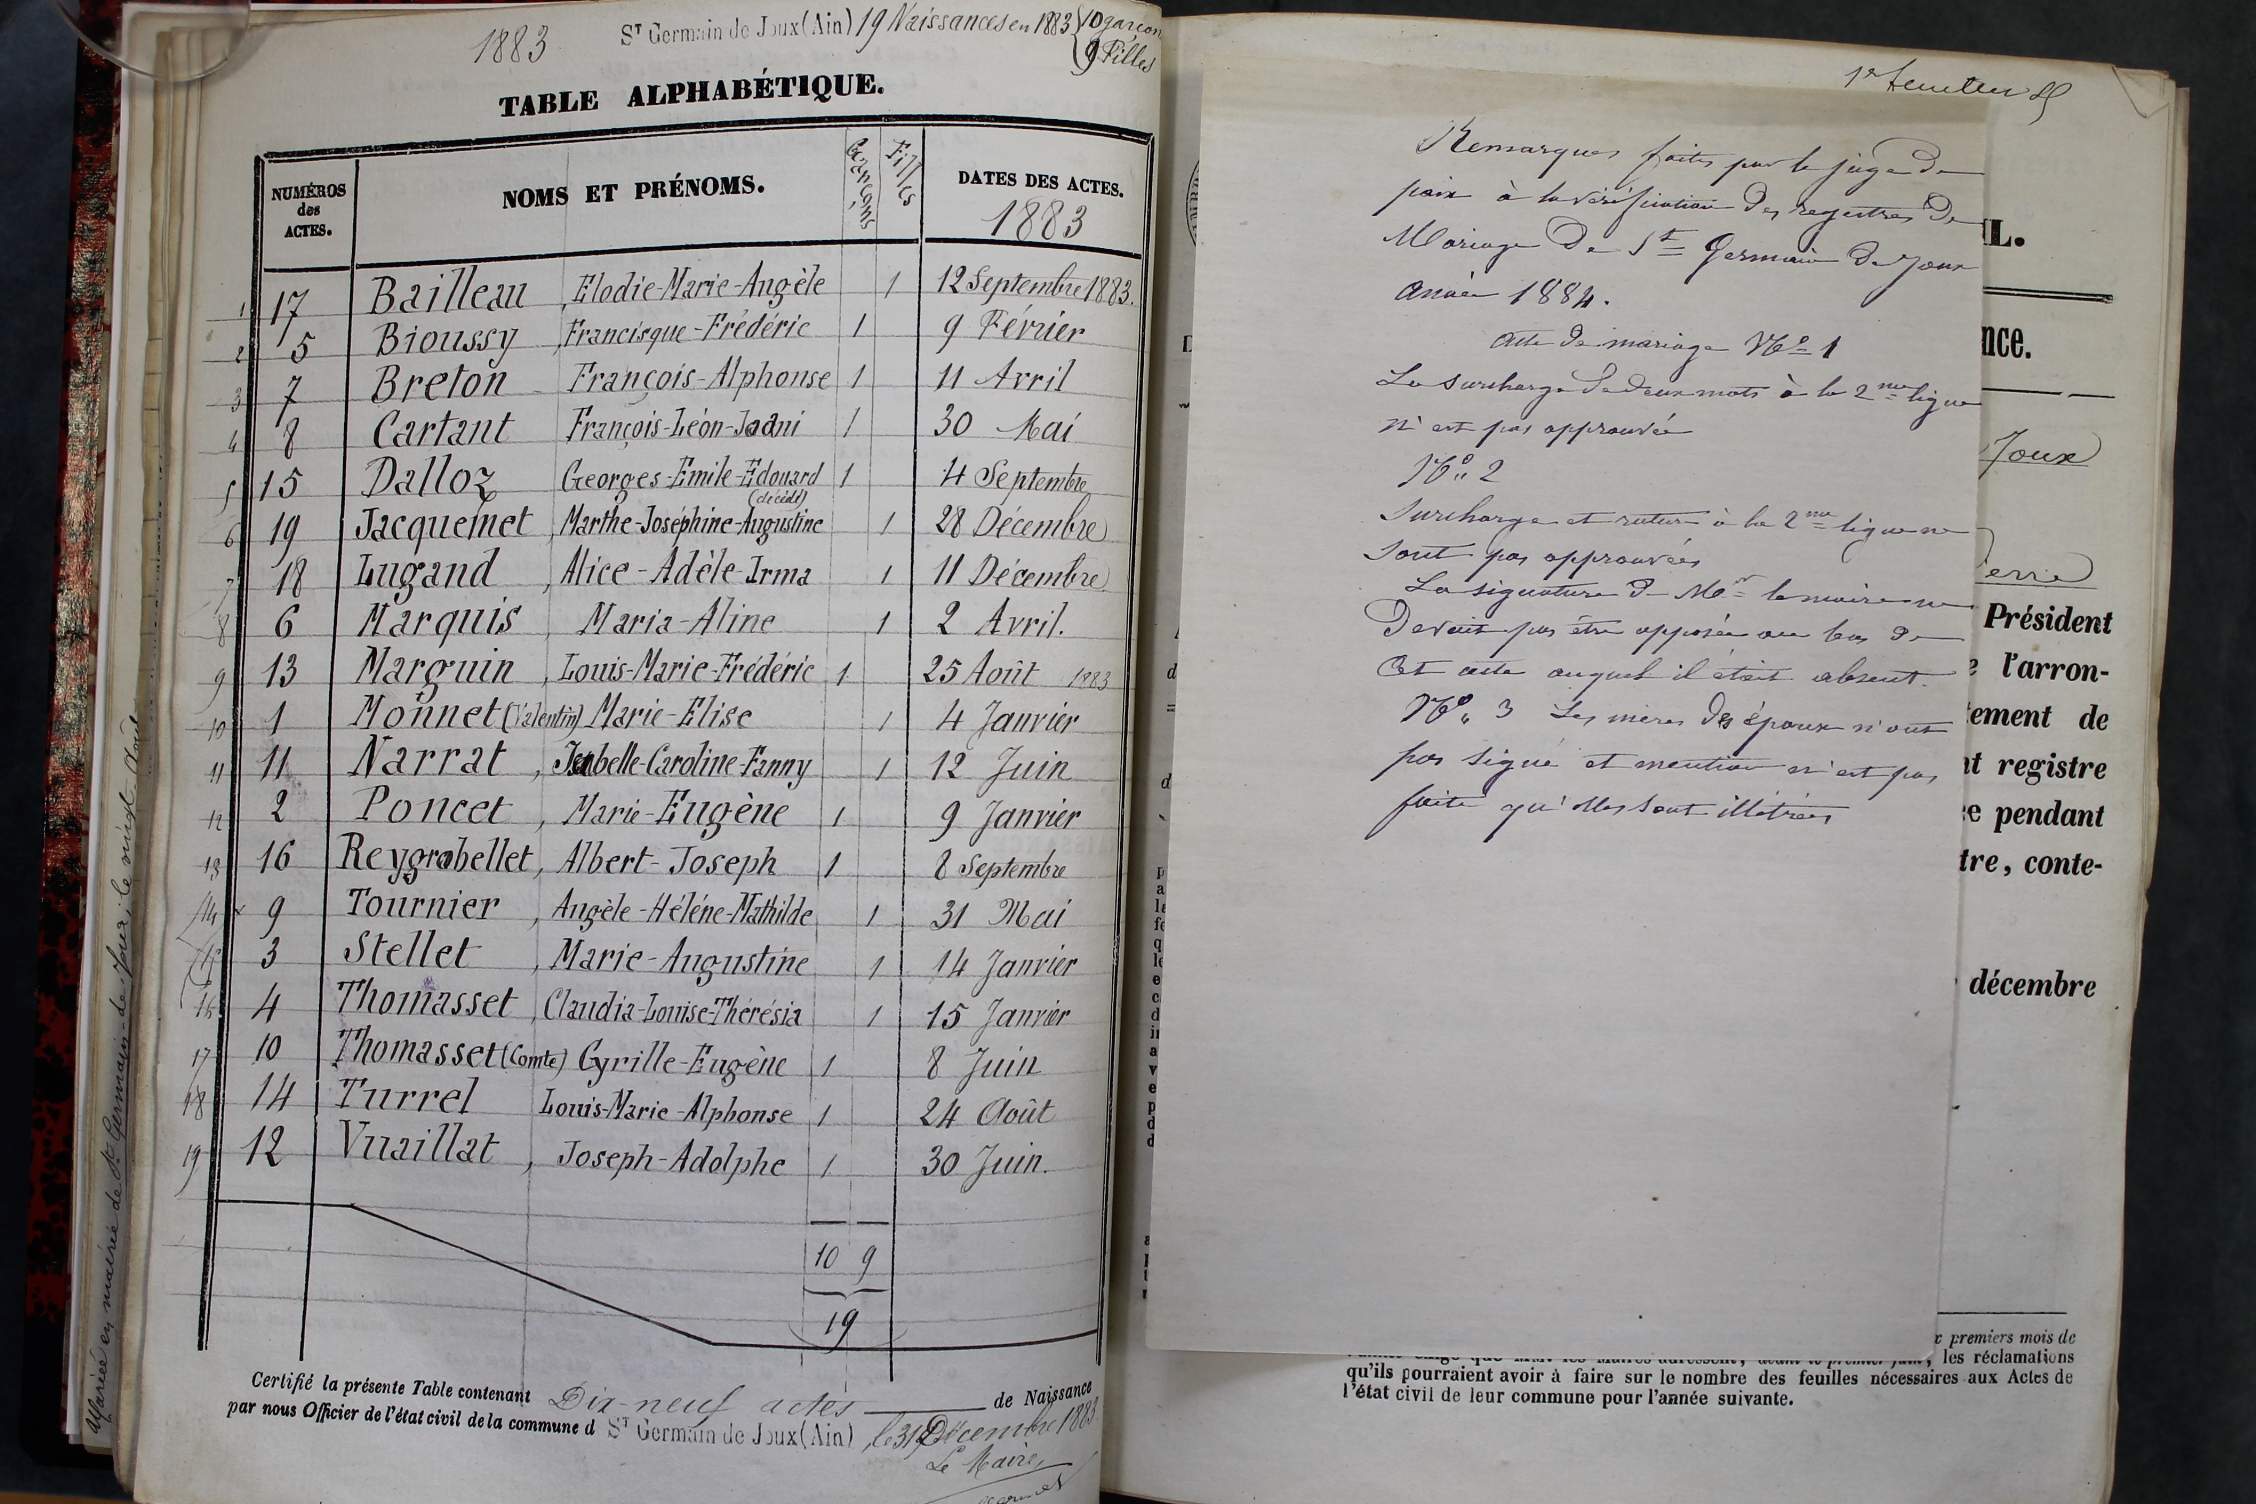 1883
St Germain de Joux (Ain) 19 Naissances en 1883 { 10 garçons
9 Filles
TABLE ALPHABÉTIQUE.
NUMÉROS des ACTES. NOMS ET PRÉNOMS. Garçons Filles DATES DES ACTES.
1883
1 17 Bailleau, Elodie-Marie-Angèle 1 12 Septembre 1883.
2 5 Bioussy, Francisque-Frédéric 1 9 Février
3 7 Breton François-Alphonse 1 11 Avril
4 8 Cartant François-Léon-Joani 1 30 Mai
5 15 Dalloz Georges-Emile-Edouard 1 4 Septembre
(décédé)
6 19 Jacquemet, Marthe-Joséphine-Augustine 1 28 Décembre
7 18 Lugand, Alice-Adèle-Irma 1 11 Décembre
8 6 Marquis, Maria-Aline 1 2 Avril.
9 13 Marguin, Louis-Marie-Frédéric 1 25 Août 1883
10 1 Monnet (Valentin) Marie-Elise 1 4 Janvier
11 11 Narrat, Isabelle-Caroline-Fanny 1 12 Juin
12 2 Poncet, Marie-Eugène 1 9 Janvier
13 16 Reygrobellet, Albert-Joseph 1 8 Septembre
14 9 Tournier, Angèle-Héléne-Mathilde 1 31 Mai
15 3 Stellet, Marie-Augustine 1 14 Janvier
16 4 Thomasset, Claudia-Louise-Thérésia 1 15 Janvier
17 10 Thomasset (Comte) Cyrille-Eugène 1 8 Juin
18 14 Turrel Louis-Marie-Alphonse 1 24 Août
19 12 Vuaillat, Joseph-Adolphe 1 30 Juin.
10 9
19
Certifié la présente Table contenant Dix-neuf actes de Naissance
par nous Officier de l'état civil de la commune d St Germain de Joux (Ain), le 31 Décembre 1883
Le Maire,
en mairie de St Germain-de-Joux, le vingt Août
Remarques faites par le juge de
paix à la vérification des registres de
Mariage de St Germain de Joux
année 1884.
acte de mariage No 1
La surcharge de deux mots à la 2me ligne
n'est pas approuvée
No 2
Surcharge et rature à la 2me ligne ne
sont pas approuvées
La signature de Mr le maire ne
devait pas être apposée au bas de
cet acte auquel il était absent.
No 3 Les mères des époux n'ont
pas signé et mention n'est pas
faite qu'elles sont illétrées
L.
nce.
Joux
erre
Président
l'arron-
tement de
nt registre
pendant
tre, conte-
décembre
premiers mois de
les réclamations
qu'ils pourraient avoir à faire sur le nombre des feuilles nécessaires aux Actes de
l'état civil de leur commune pour l'année suivante.